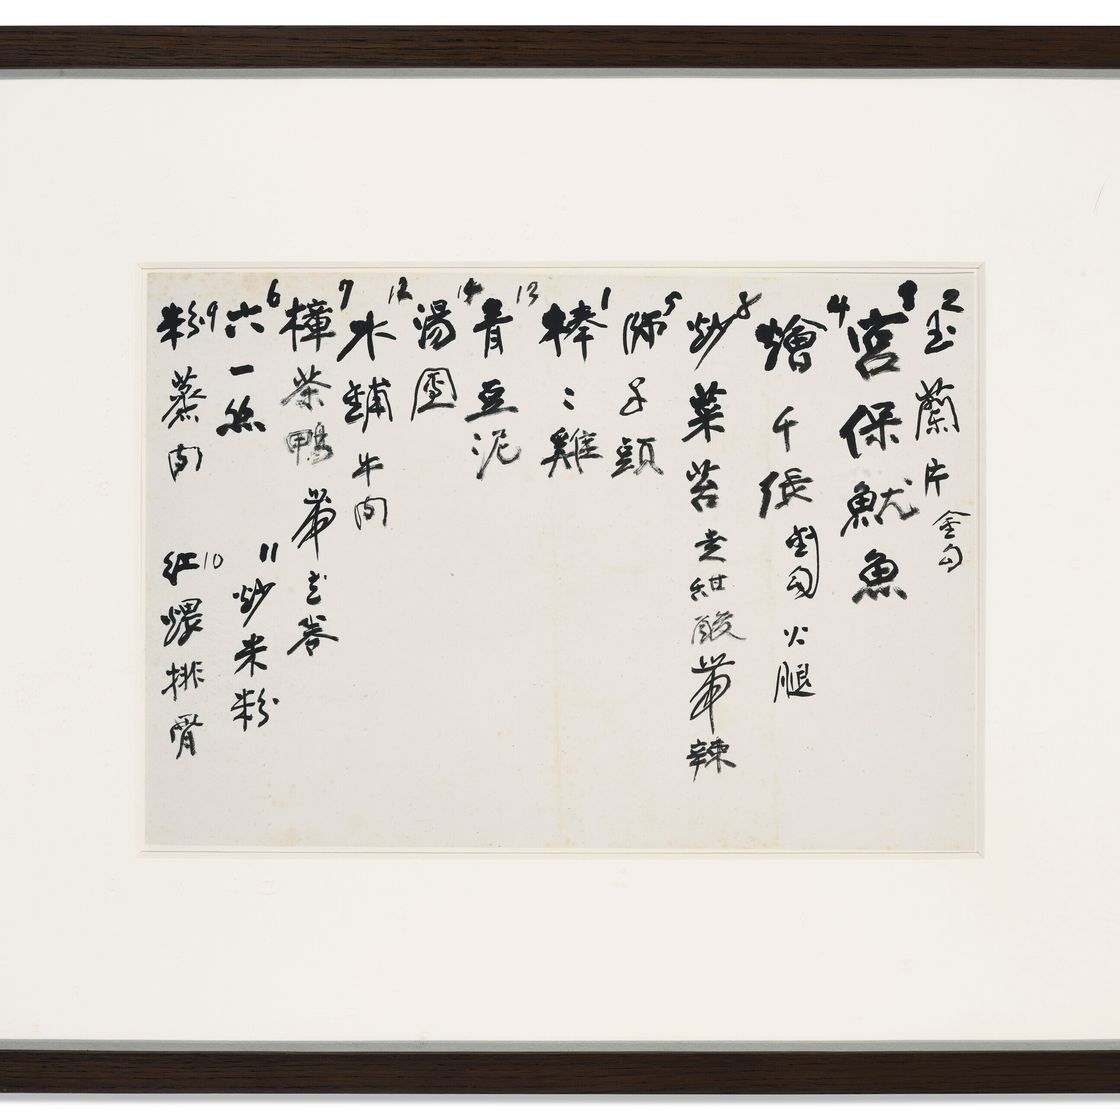 玉蘭片 2
宮保魷魚 3
燴千張 火腿 4
炒菜苔 走紺酸帶辣 8
獅子頭 5
棒〻雞 1
青豆泥 13
湯圓 14
水鋪牛肉 12
樟茶鴨帶荷葉卷 7
六一絲 6
11 炒米粉
粉蒸肉 9
紅煨排骨 10